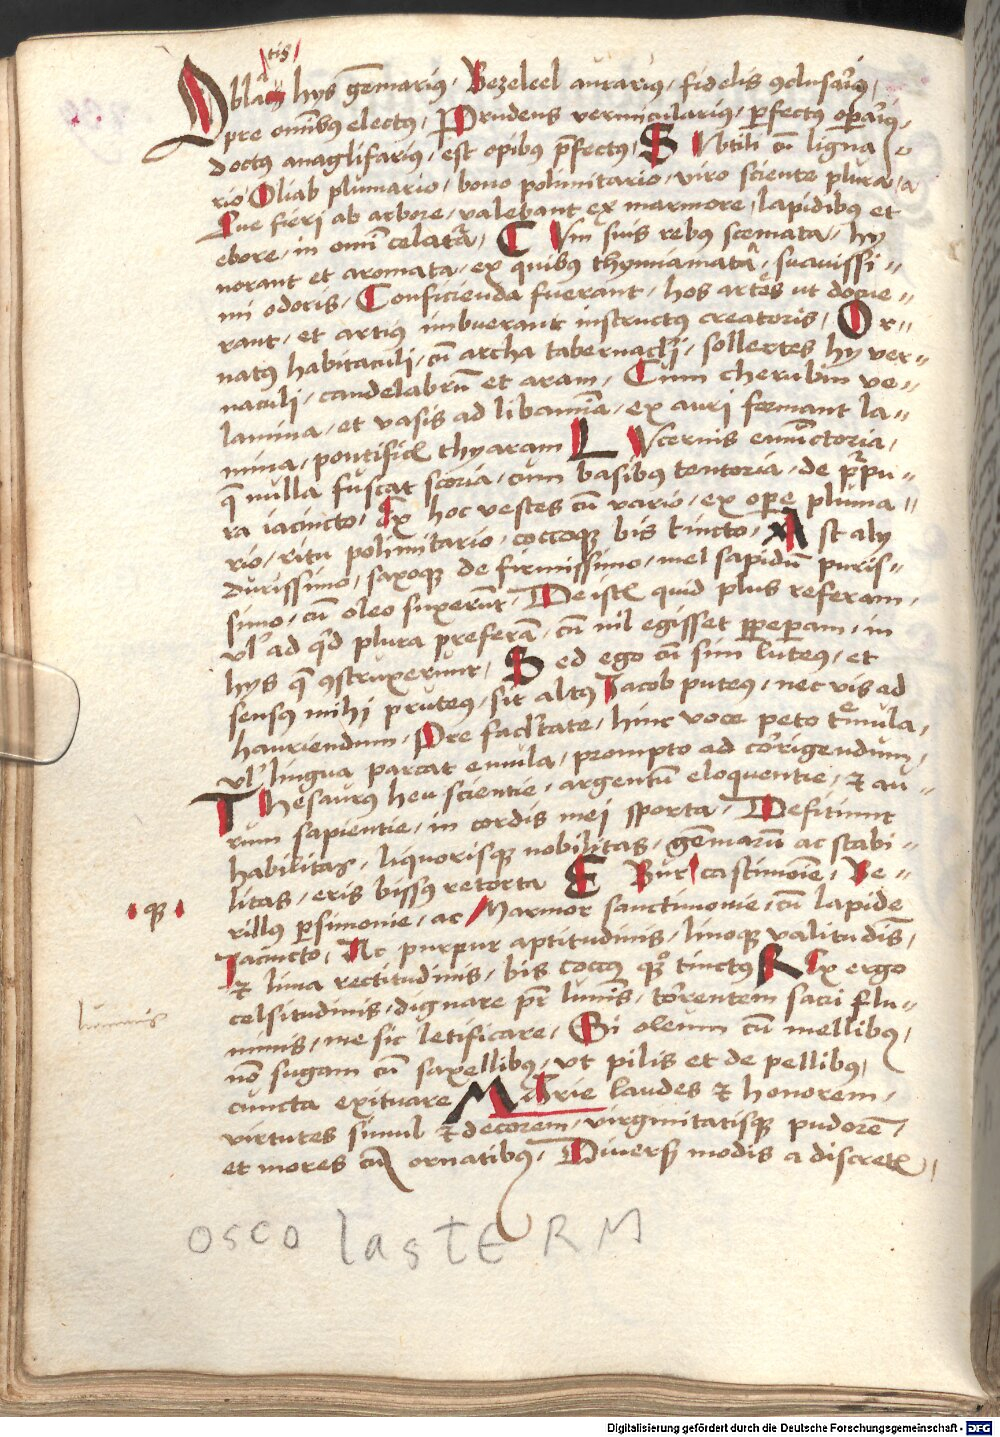 tis
Oblatis hys gēmarius, Bezeleel aurarius, fidelis ꝯclusariꝰ,
pre omībus electus, Prudens vermicularius, ꝑfectus oꝑariꝰ,
doctus anaglifarius, est opibus p̄fectus, Subtili cū ligna
rio Oliab plumario, bono polimitario, viro sciente plura,
Que fieri ab arbore, valebant ex marmore, lapidibus et
ebore, in omī celatura, Cum suis rebus scemata, hy
norant et aromata, ex quibus thymiamata, suauissi=
mi odoris, Conficienda fuerant, hos artes ut docue=
rant, et artius imbuerant instructus creatoris, Or=
natus habitaculi, cū archa tabernacli, sollertes hy ver=
naculi, candelabrū et aram, Cum cherubin ve=
lamina, et vasis ad libamina, ex auri formant la=
mina, pontificꝭ thyaram Lucernis emūctoria,
q̄ nulla fuscat scoria, cum basibus tentoria, de purpu=
ra iacincto, Ex hoc vestes cū vario, ex opere pluma=
rio, ritu polimitario, coccoqꝫ bis tincto, Ast aly
durissimo, saxoqꝫ de firmissimo, mel sapidū puris=
simo, cū oleo suxerūt, De istꝭ quid plus referam,
vl' ad qͥd plura preferā, cū nil egisset ꝑperam, in
hys q̄ ꝯstruxerunt, Sed ego cū sim luteus, et
sensus mihi pruteus, sit altus Jacob puteus, nec vis ad
hauriendum, Pre facl'tate, hinc voce peto tremula,
vl' lingua parcat emula, prompto ad corrigendum,
Thesaurus heu scientie, argentum eloquentie, et au=
rum sapientie, in cordis mei sporta, Defitiunt
habilitas, liquorisqꝫ nobilitas, gēmarū ac stabi=
litas, eris bissus retorta Ebur castimonie, Be=
rillus ꝑsimonie, ac Marmor sanctimonie, cū lapide
qꝫ
Jacincto, Ac purpur aptitudinis, linoqꝫ valitudīs,
et lima rectitudinis, bis coccus qͦꝫ tinctus Rex ergo
celsitudinis, dignare pr̄ luminis, torrentem sacri flu=
luminis
minis, me sic letificare, Si oleum cū mellibus,
nō sugam cū saxellibus, vt pilis et de pellibus,
cuncta exituare Marie laudes et honorem,
virtutes simul et decorem, virginitatisqꝫ pudorē,
et mores cū ornatibus, Diuersꝭ modis a discretꝭ,
OSCO lasTE RM
Digitalisierung gefördert durch die Deutsche Forschungsgemeinschaft - DFG